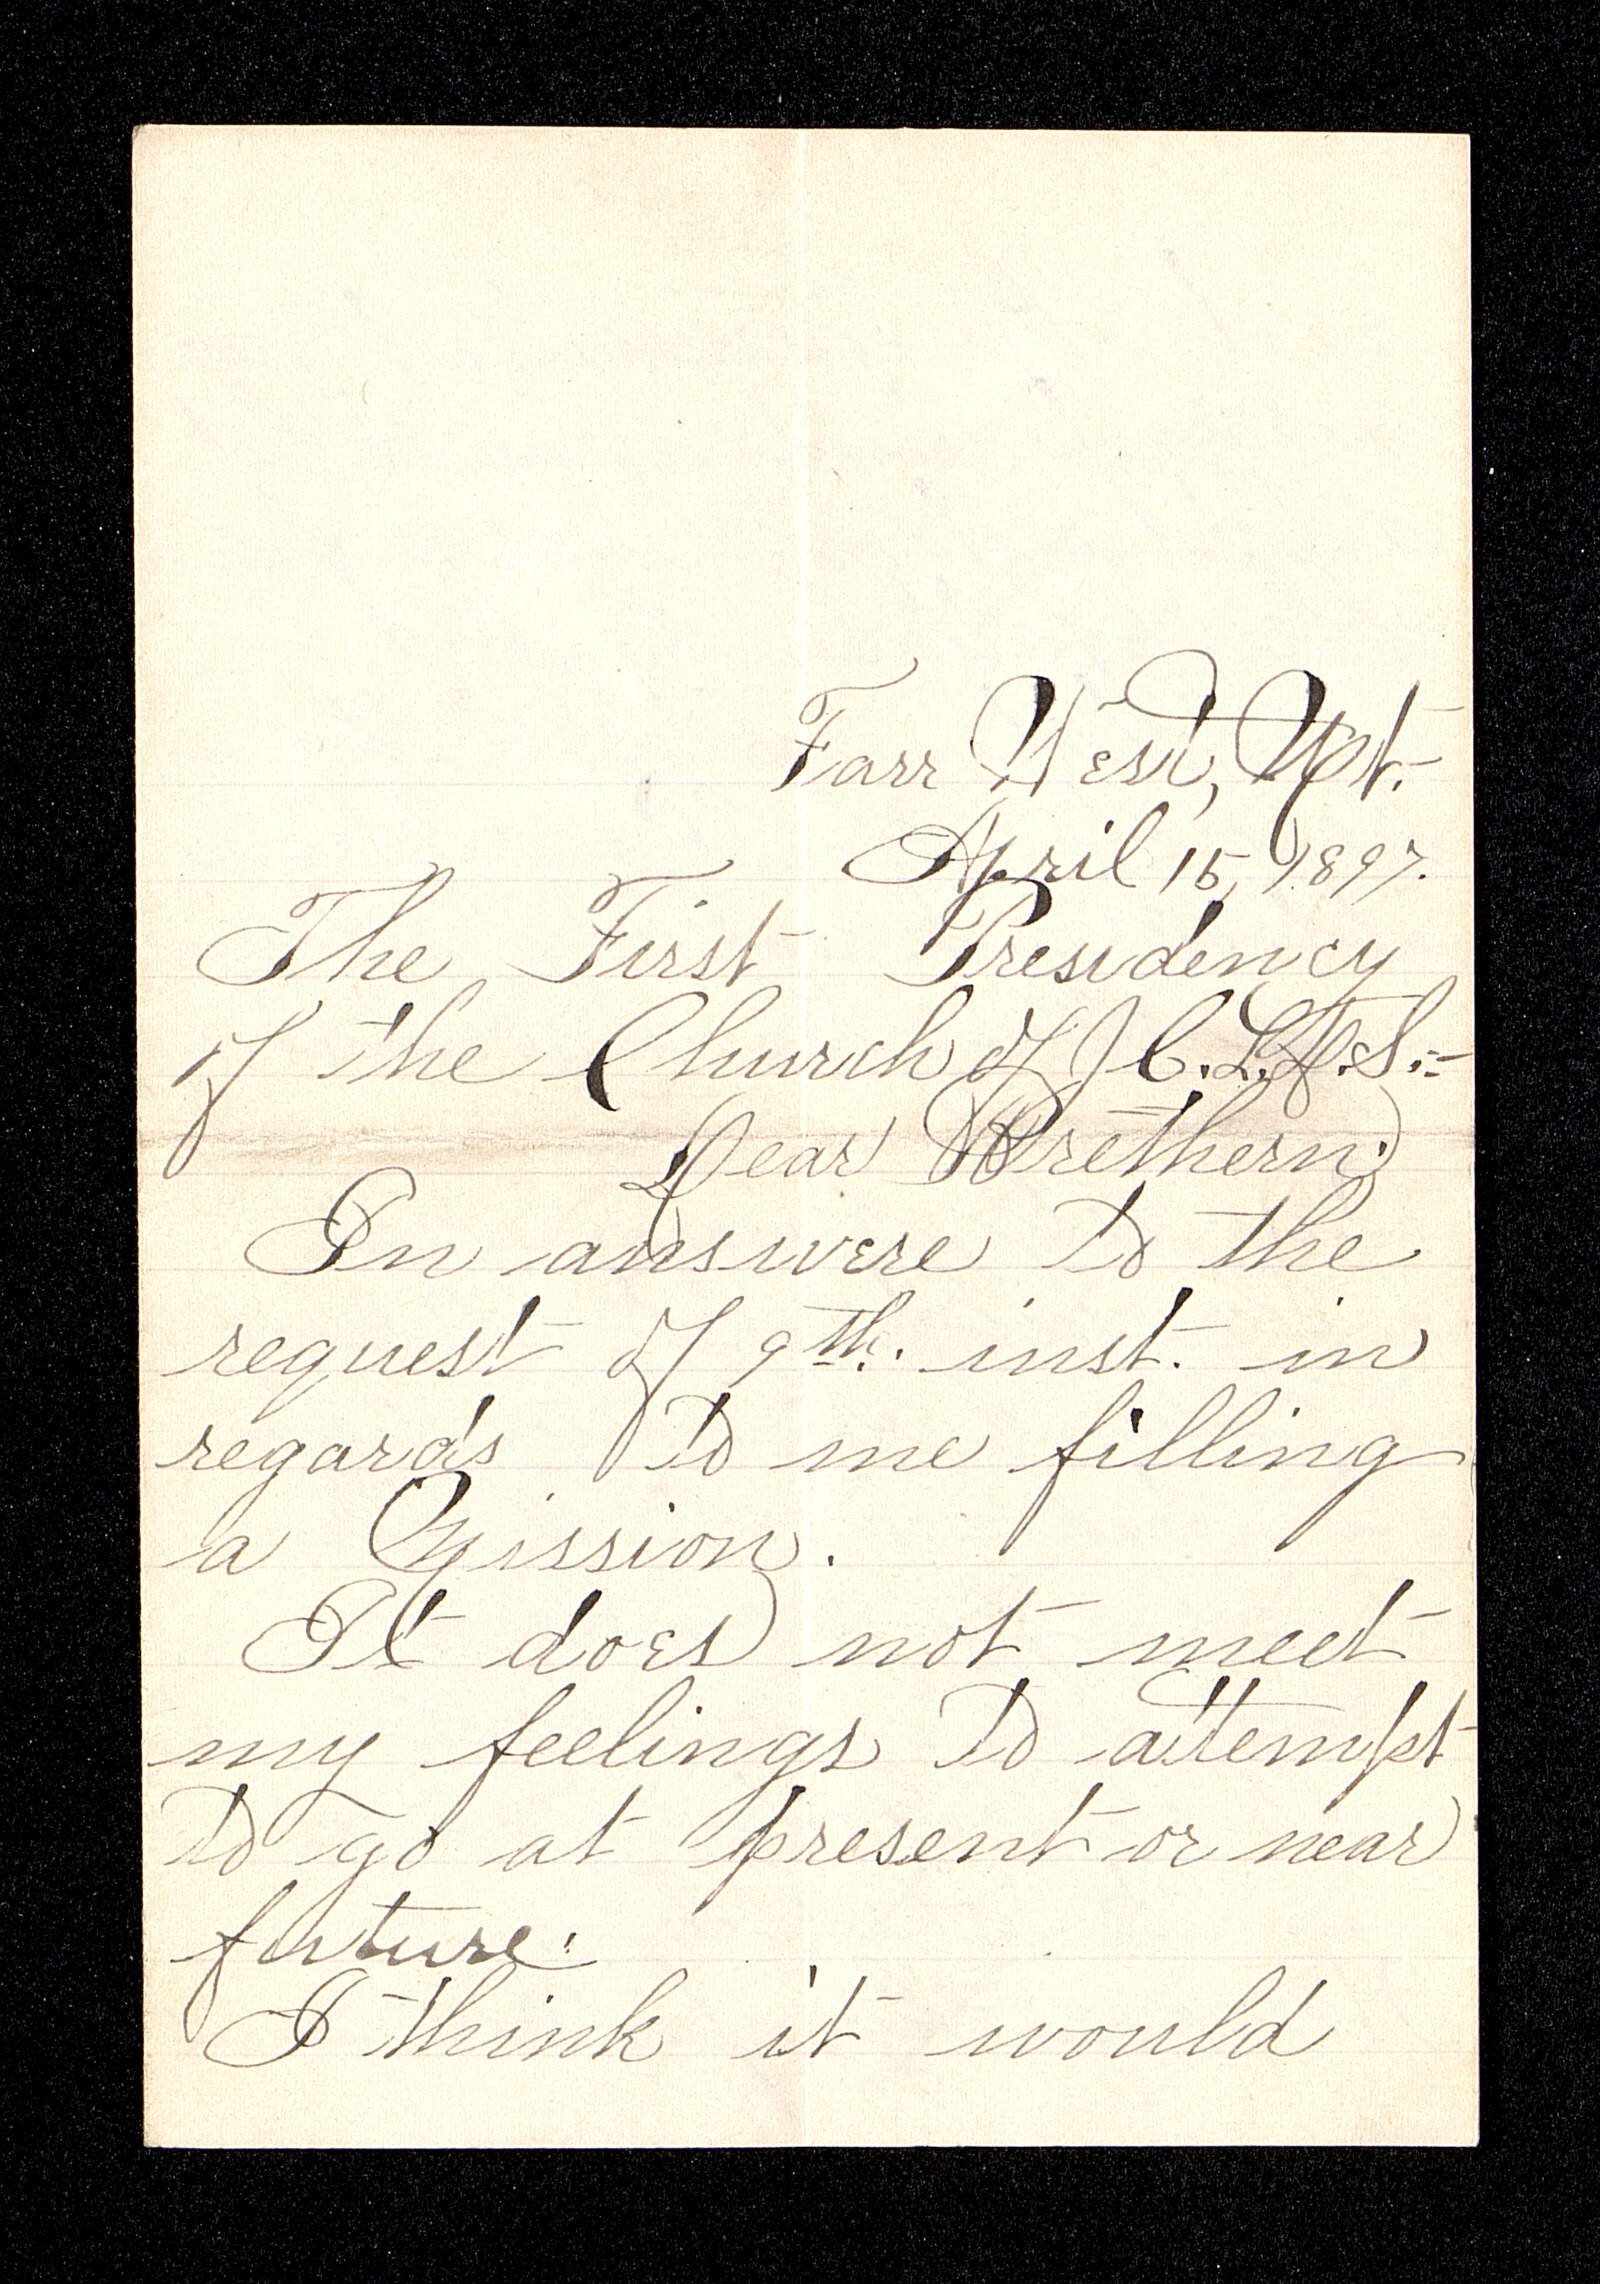 Farr West, Ut.
April 15, 1897.
The First Presidency
of the Church of J C. L. D. S.:-
Dear Brethern:
In answere to the
request of 9th. inst. in
regards to me filling
a Mission.
It does not meet
my feelings to attempt
to go at present or near
future.
I think it would